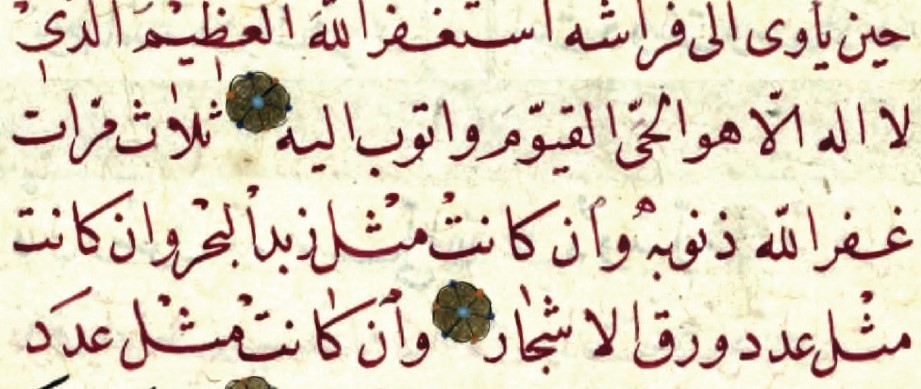 حين يأوى الى فراشه استغفر الله العظيم الذى
لا اله الّا هو الحىّ القيّوم واتوب اليه ثلاث مرّات
غفر الله ذنوبه وأن كانت مثل زبد البحر وان كانت
مثل عدد ورق الاشجار وأن كانت مثل عدد